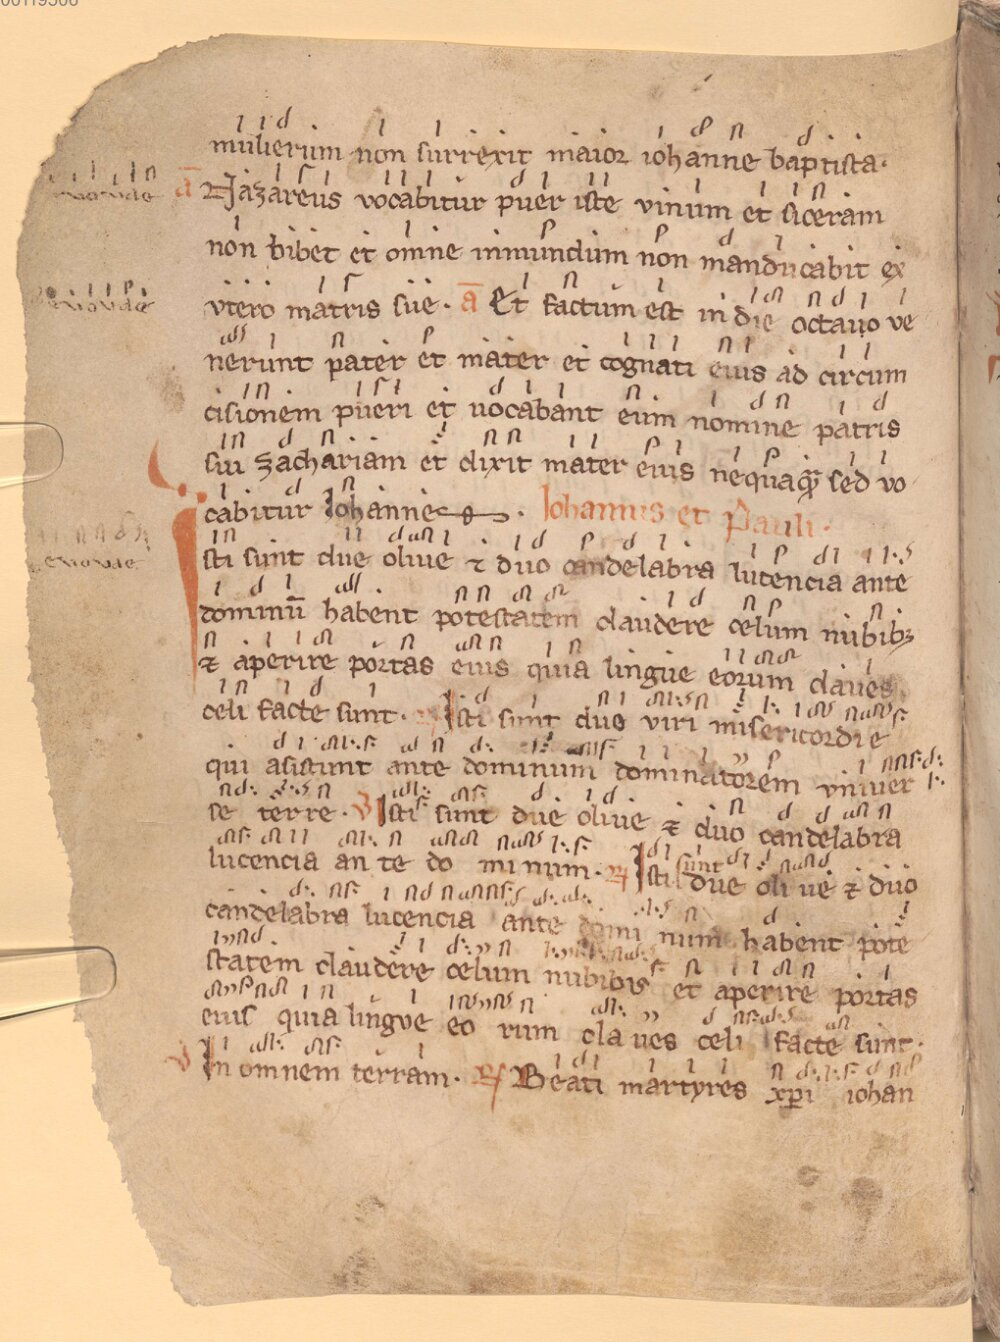 mulierum non surrexit maior iohanne baptista.
euouae
ā Nazareus vocabitur puer iste vinum et siceram
non bibet et omne inmundum non manducabit ex
euouae
vtero matris sue. ā Et factum est in die octauo ve
nerunt pater et mater et cognati eius ad circum
cisionem pueri et uocabant eum nomine patris
sui zachariam et dixit mater eius nequaq̄ sed vo
cabitur Iohannes. Iohannis et Pauli.
euouae
Isti sunt due oliue ⁊ duo candelabra lucencia ante
dominū habent potestatem claudere celum nubibꝫ
⁊ aperire portas eius quia lingue eorum claues
celi facte sunt. Isti sunt due viri misericordie
qui asistunt ante dominum dominatorem vniuer
se terre. V Isti sunt due oliue ⁊ duo candelabra
lucencia an te do minum. ℞ Isti sunt due oli ue ⁊ duo
candelabra lucencia ante domi num habent pote
statem claudere celum nubibus et aperire portas
eius quia lingue eo rum cla ues celi facte sunt.
V In omnem terram. ℞ Beati martyres xp̄i iohan